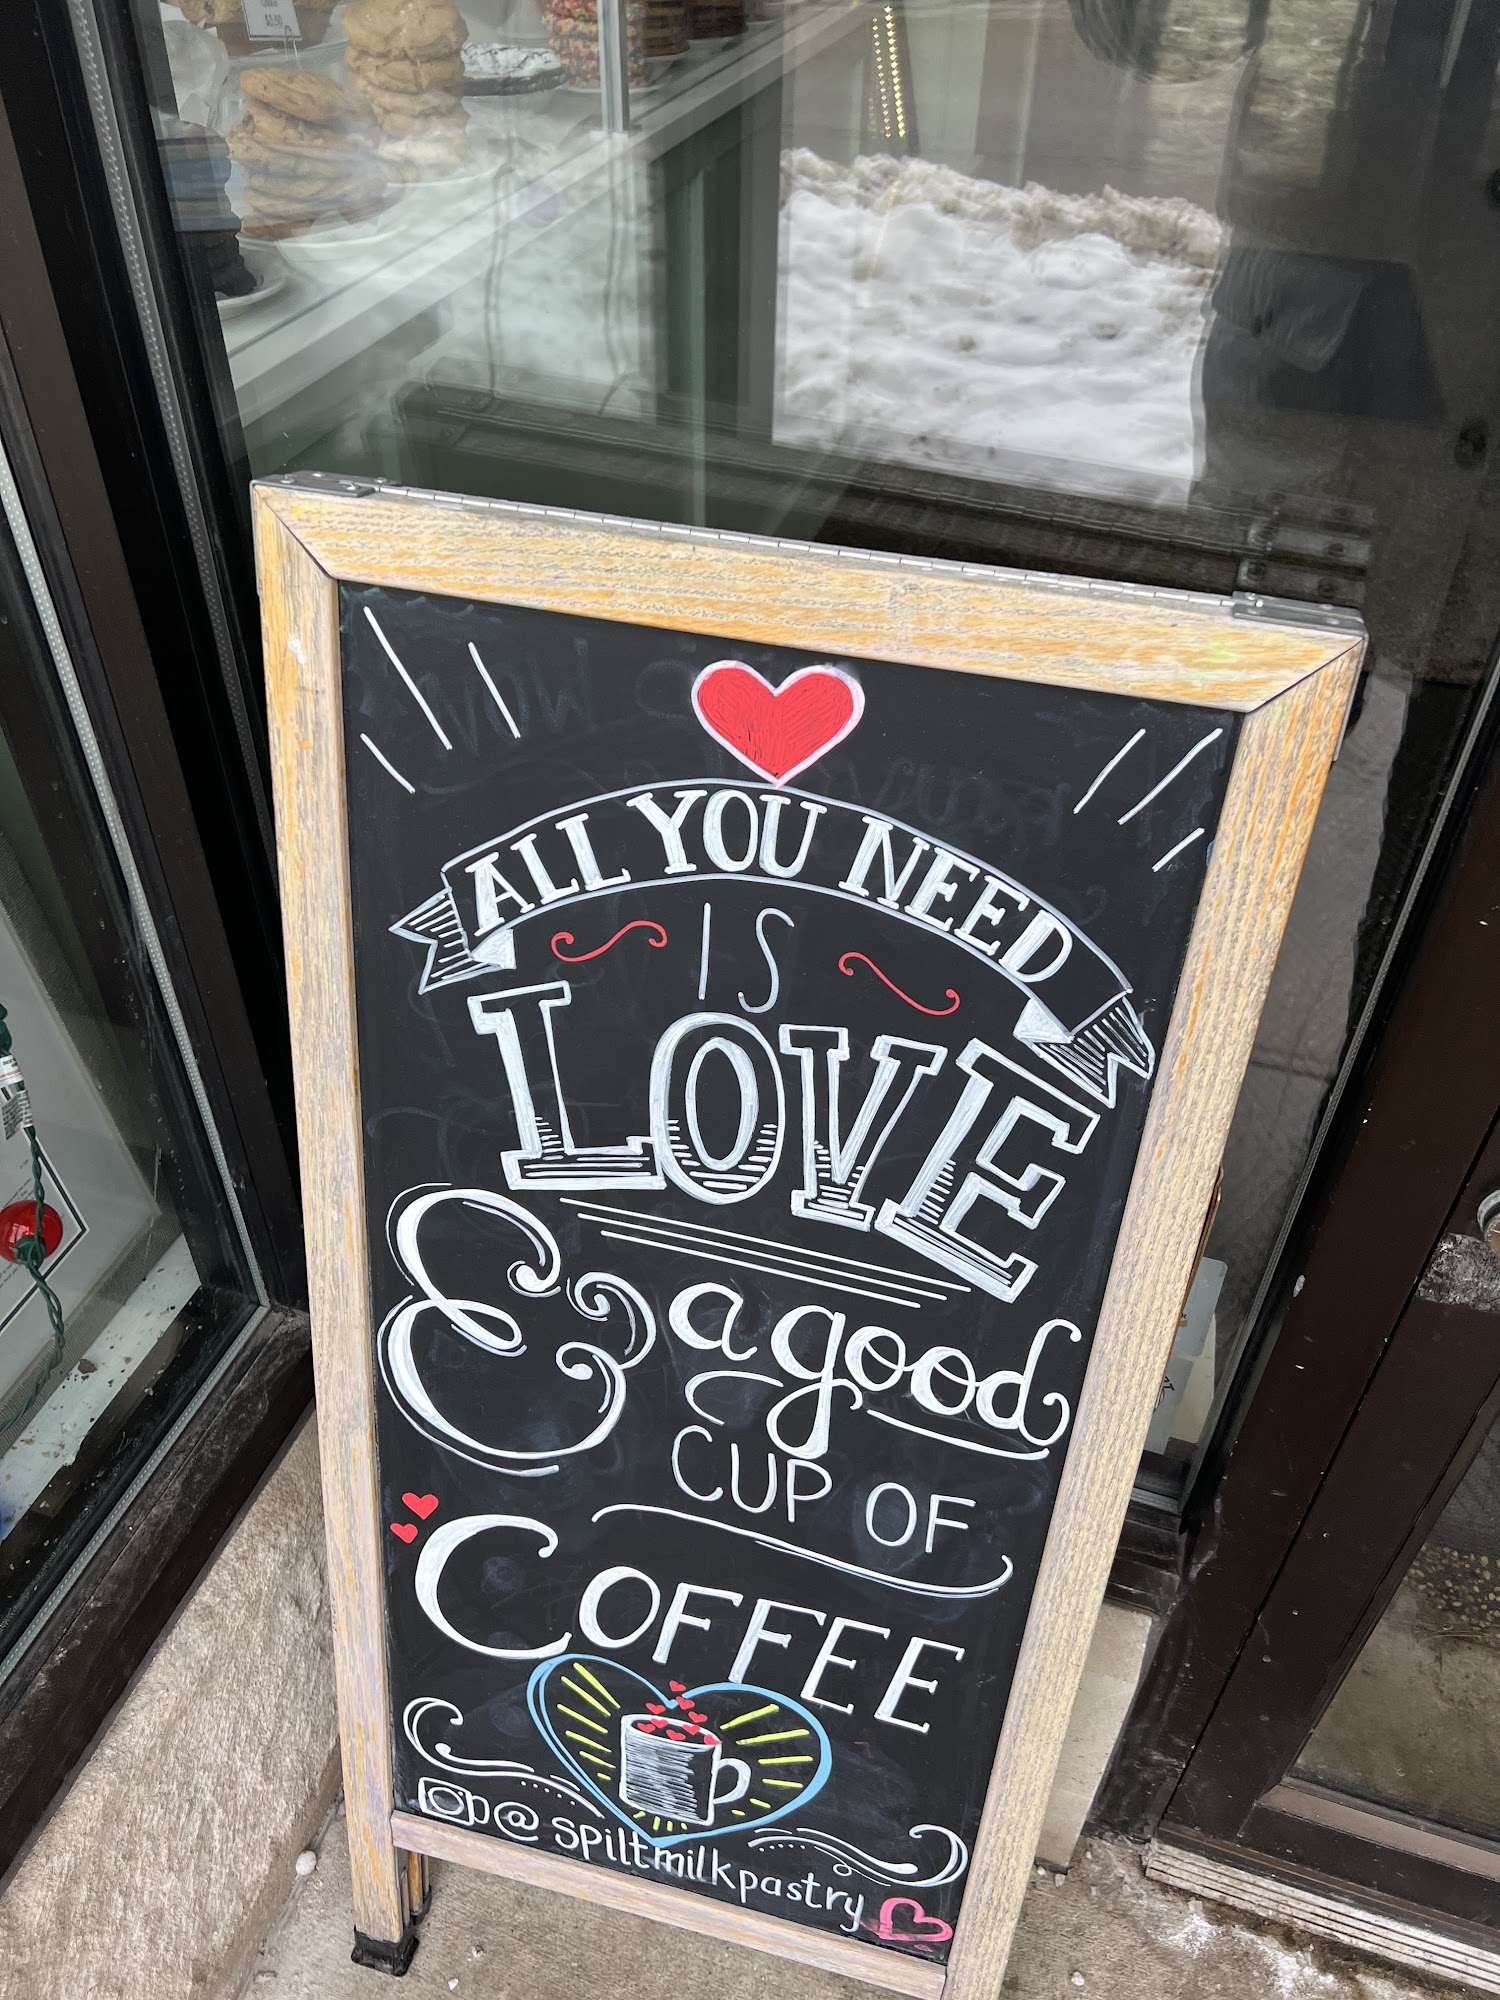 ALL YOU NEED
IS
LOVE
& a good
CUP OF
COFFEE
@spiltmilkpastry